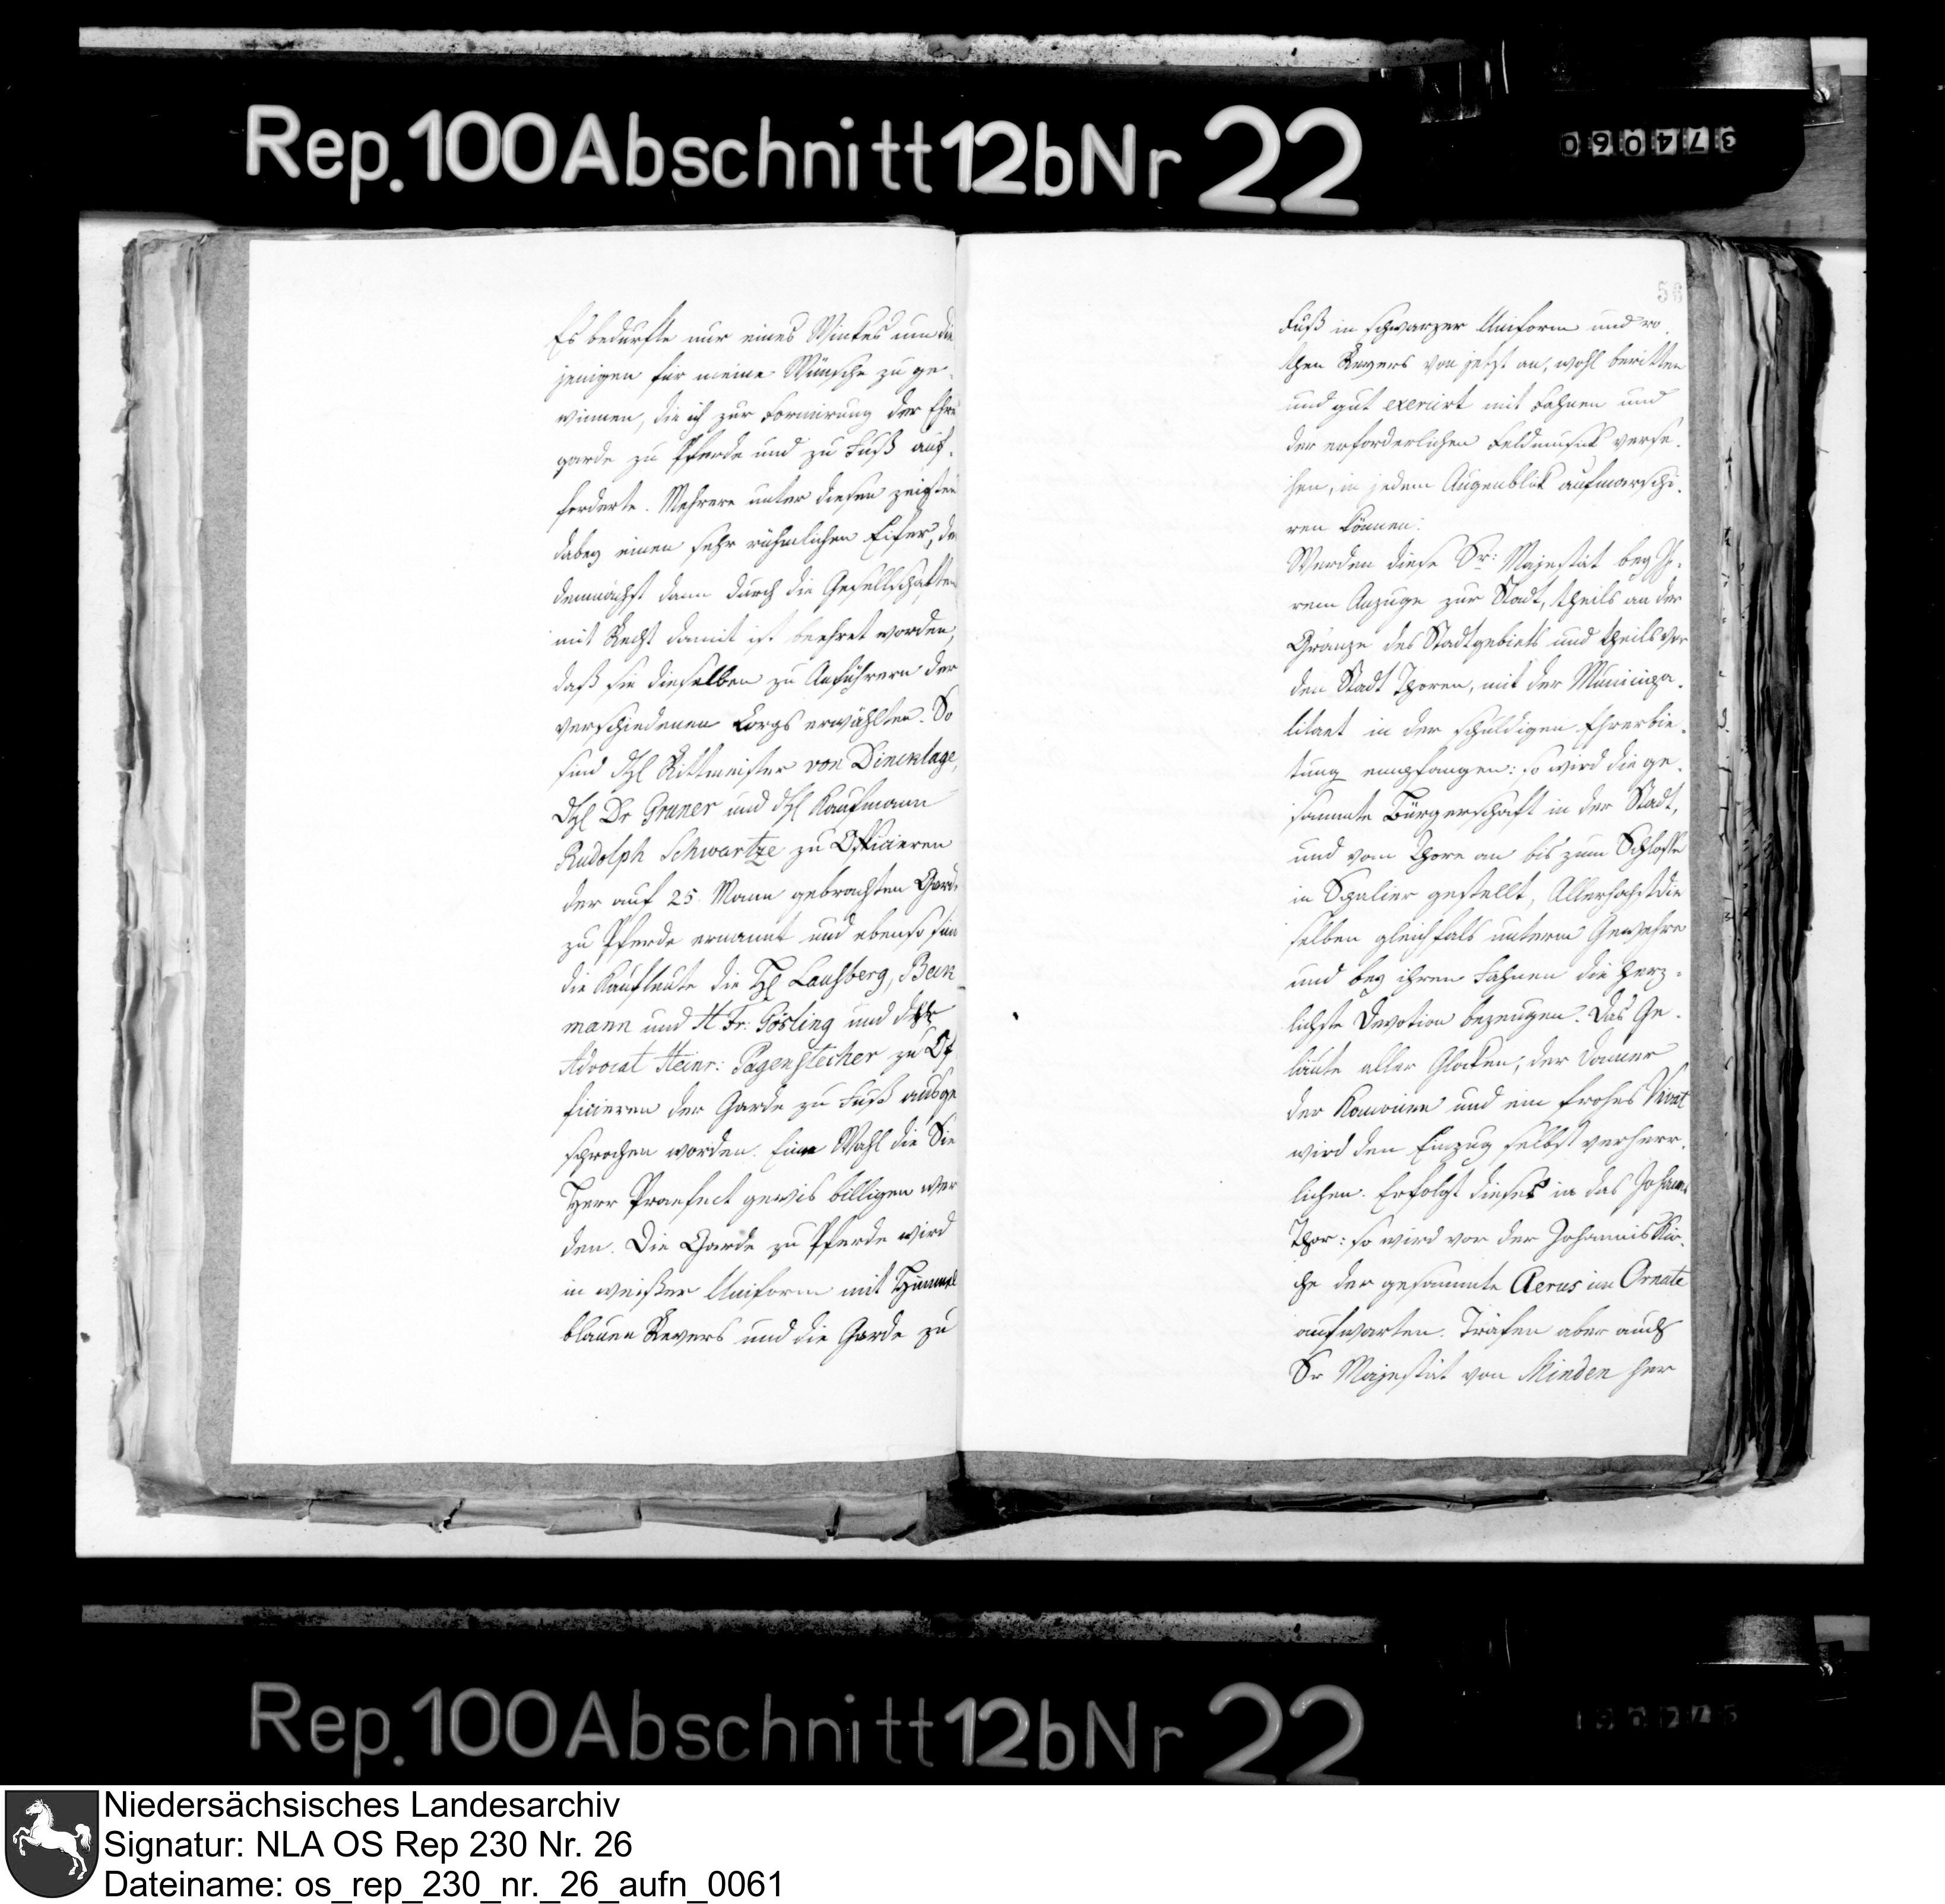 Rep. 100 Abschnitt 12b Nr 22
374060
Es bedurfte nur eines Winkes um die
jenigen für meine Wünsche zu ge-
winnen, die ich zur Formirung der Ehren
garde zu Pferde und zu Fuß auf-
forderte. Mehrere unter diesen zeigten
dabey einen sehr rühmlichen Eifer, der
demnächst dann durch die Gesellschaften
mit Recht damit ist beehret worden,
daß sie dieselben zu Anführern der
verschiedenen Corps erwählten. So
sind Rittmeister von Dincklage,
Dr Gruner und Kaufmann
Rudolph Schwartze zu Officieren
der auf 25 Mann gebrachten Garde
zu Pferde ernannt und ebenso sind
die Kaufleute die Lausberg,
mann und H. Fr: Gösling und
Advocat Heinr: Pagenstecher zu Of
ficieren der Garde zu Fuß ausge
sprochen worden. Eine Wahl die Sie
Herr Praefect gewis billigen wer
den. Die Garde zu Pferde wird
in weißer Uniform mit Himmel
blauen Revers und die Garde zu
Fuß in schwarzer Uniform und ro-
then Revers von jetzt an, wohl beritten
und gut exercirt mit Fahnen und
der erforderlichen Feldmusik verse-
hen, in jedem Augenblik aufmarschi-
ren können.
Werden diese Sr: Majestät bey Ih-
rem Anzuge zur Stadt, theils an der
Gränze des Stadtgebiets und theils vor
den Stadt Thoren, mit der Municipa-
litaet in der schuldigen Ehrerbie-
tung empfangen: so wird die ge-
sammte Bürgerschaft in der Stadt,
und vom Thore an bis zum Schlosse
in Spalier gestellt, Allerhöchstdie
selben gleichfals unterm Gewehre
und bey ihren Fahnen die herz-
lichste Devotion bezeugen. Das Ge-
läute aller Glocken, der Donner
der Kanonen und ein frohes Vivat
wird den Einzug selbst verherr-
lichen. Erfolgt dieser in das Johannis
Thor: so wird vor der Johannis Kir-
che der gesammte Clerus im Ornate
aufwarten. Träfen aber auch
Sr Majestät von Minden her
Rep. 100 Abschnitt 12b Nr 22
Niedersächsisches Landesarchiv
Signatur: NLA OS Rep 230 Nr. 26
Dateiname: os_rep_230_nr._26_aufn_0061